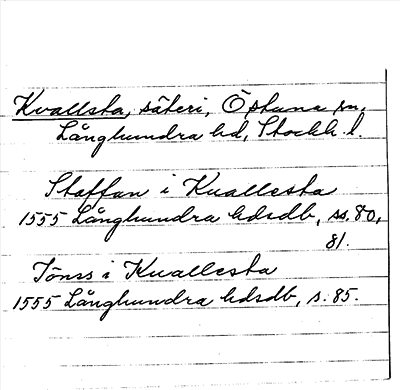 Kvallsta, säteri, Östuna sn,
Långhundra hd, Stockh. l.
Staffan i Kuallesta
1555 Långhundra hdsdb, ss. 80,
81.
Jönss i Kuallesta
1555 Långhundra hdsdb, s. 85.